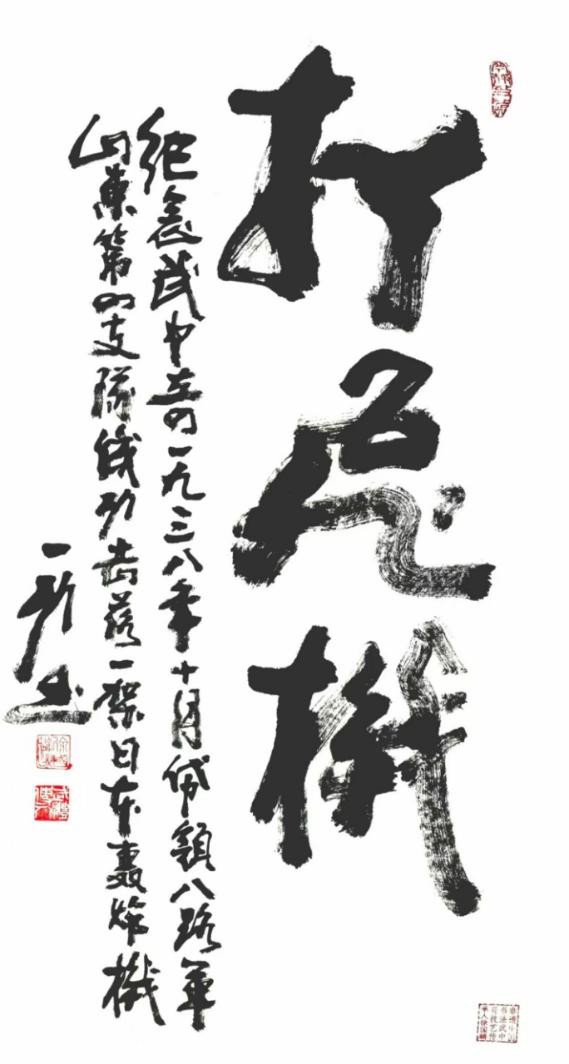 打飛機
紀念武中奇一九三八年十月帶領八路軍
山東第四支隊成功击落一架日本轟炸機
一 书